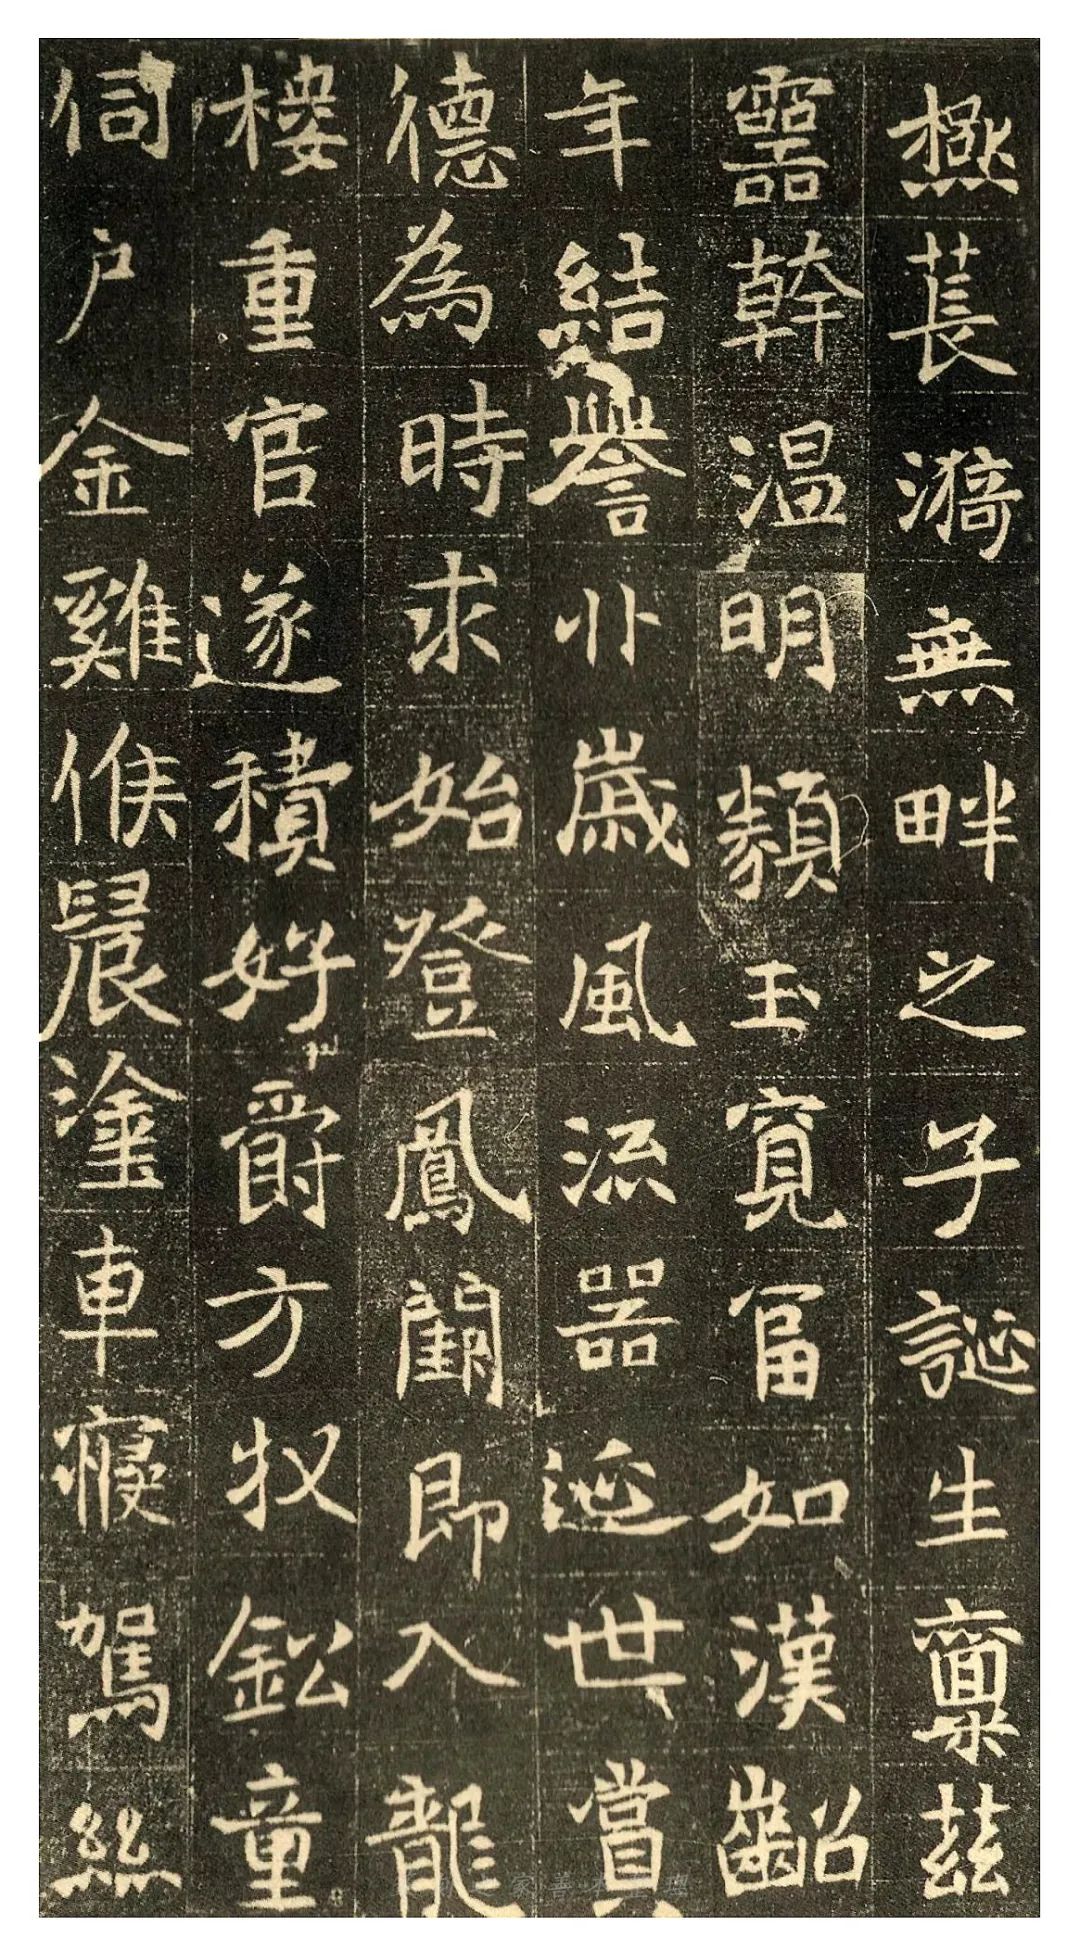 極萇漪無畔之子誕生稟茲
靈幹温明類玉寬富如漢齠
年結譽丱歲風流器延世賞
德為時求始登鳳即入龍
樓重官遂積好爵方收鈆童
伺户金雞候晨塗車寢駕絲